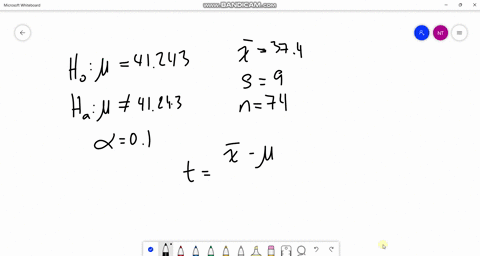 Microsoft Whiteboard
WWW.BANDICAM.COM
NT
H₀: μ = 41.243
Hₐ: μ ≠ 41.243
α = 0.1
x̄ = 37.4
s = 9
n = 74
t = x̄ - μ